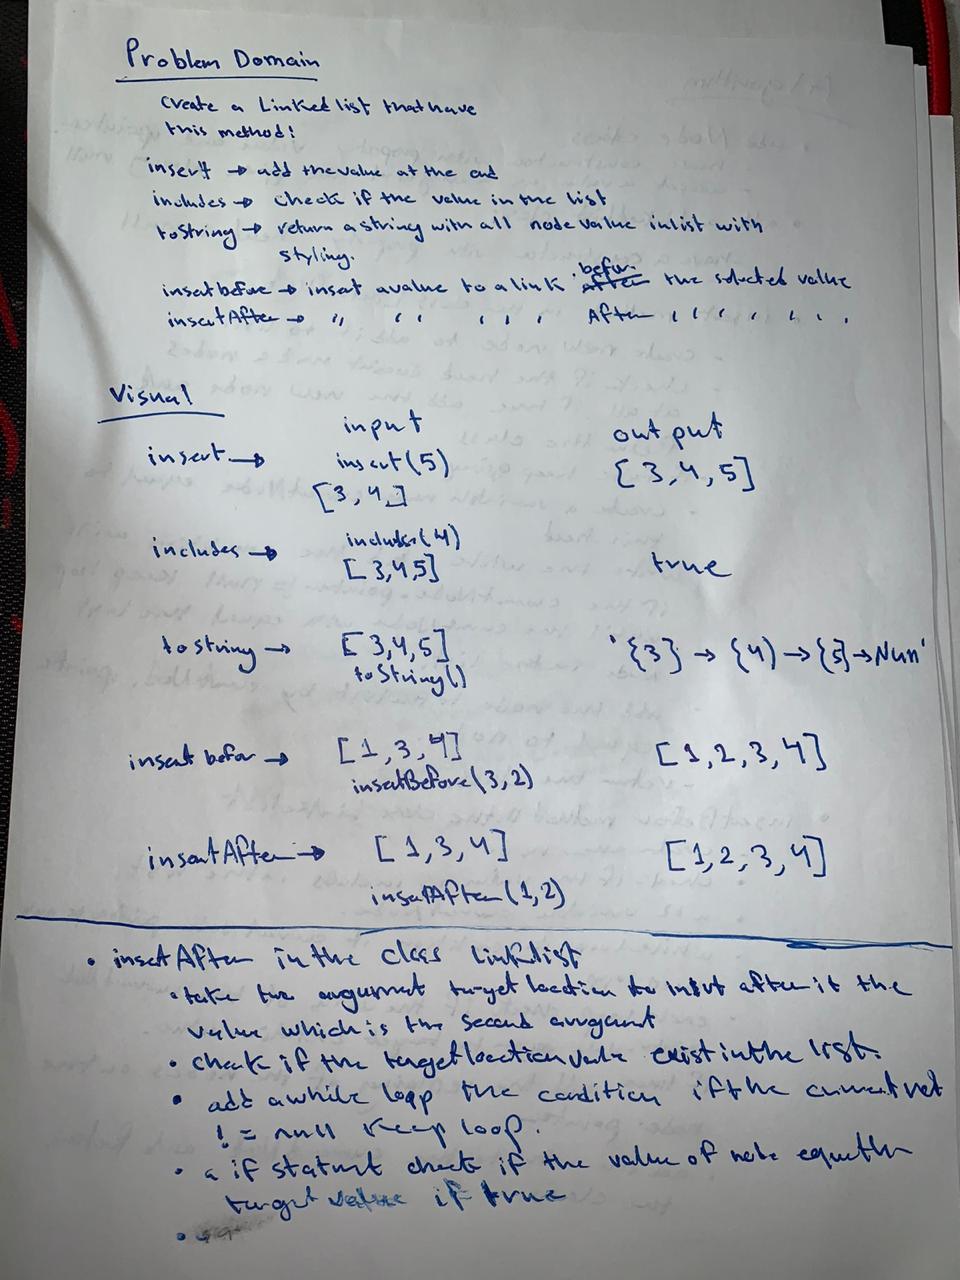 Problem Domain
Create a Linked list that have
this method:
insert → add the value at the end
includes → check if the value in the list
toString → return a string with all node value in list with
styling.
insert before → insert a value to a link befor the selected value
insertAfter → ,, ,, ,, , After , , , , , , ,
Visual
input output
insert → insert(5) [3,4,5]
[3,4,]
includes → includes(4)
[3,4,5] true
to string → [3,4,5] '{3} → {4} → {5} → Null'
toString()
insert befor → [1,3,4] [1,2,3,4]
insertBefore(3,2)
insertAfter → [1,3,4] [1,2,3,4]
insertAfter(1,2)
• insertAfter in the class linkedlist
• take two argumnt target location to insrt after it the
value which is the second arrgant
• check if the target location value exist in the list.
• add a while loop the condition if the current
!= null keep loop.
• a if statmnt check if the value of node equal the
target value if true
•